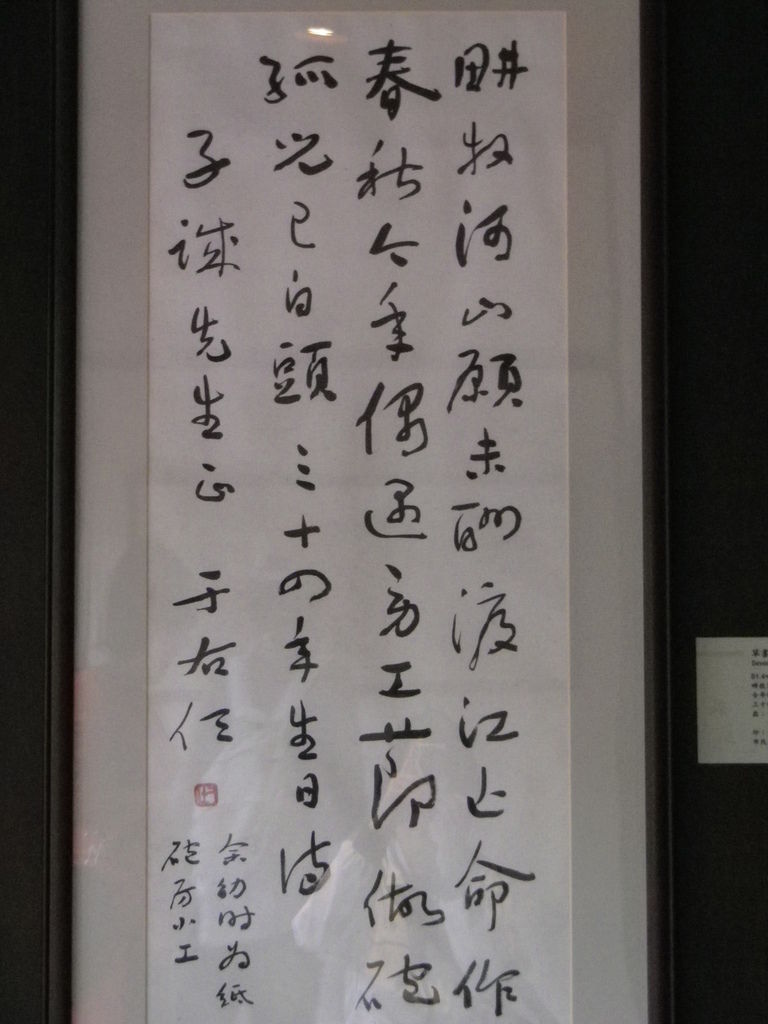 畊牧河山願未酬渡江亡命作
春秋今年偶遇勞工節做砲
孤兒已白頭三十四年生日詩
子誠先生正 于右任
余幼时为紙
砲房小工